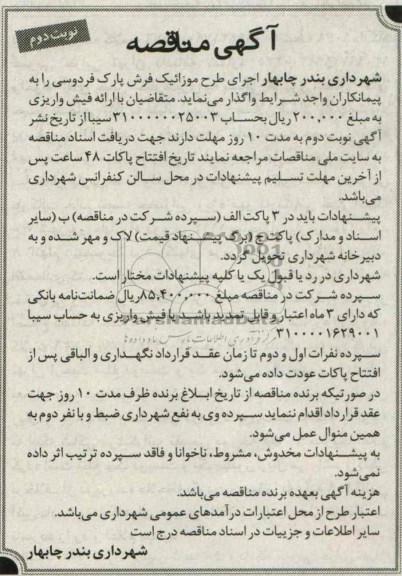 نوبت دوم
آگهی مناقصه
شهرداری بندر چابهار اجرای طرح موزائیک فرش پارک فردوسی را به
پیمانکاران واجد شرایط واگذار می‌نماید. متقاضیان با ارائه فیش واریزی
به مبلغ ۲۰۰,۰۰۰ ریال بحساب ۳۱۰۰۰۰۰۰۲۵۰۰۳ سیبا از تاریخ نشر
آگهی نوبت دوم به مدت ۱۰ روز مهلت دارند جهت دریافت اسناد مناقصه
به سایت ملی مناقصات مراجعه نمایند تاریخ افتتاح پاکات ۴۸ ساعت پس
از آخرین مهلت تسلیم پیشنهادات در محل سالن کنفرانس شهرداری
می‌باشد.
پیشنهادات باید در ۳ پاکت الف (سپرده شرکت در مناقصه) ب (سایر
اسناد و مدارک) پاکت ج (برگ پیشنهاد قیمت) لاک و مهر شده و به
دبیرخانه شهرداری تحویل گردد.
شهرداری در رد یا قبول یک یا کلیه پیشنهادات مختار است.
سپرده شرکت در مناقصه مبلغ ۸۵,۴۰۰,۰۰۰ ریال ضمانت‌نامه بانکی
که دارای ۳ ماه اعتبار و قابل تمدید باشد یا فیش واریزی به حساب سیبا
۳۱۰۰۰۰۱۶۲۹۰۰۱
سپرده نفرات اول و دوم تا زمان عقد قرارداد نگهداری و الباقی پس از
افتتاح پاکات عودت داده می‌شود.
در صورتیکه برنده مناقصه از تاریخ ابلاغ برنده ظرف مدت ۱۰ روز جهت
عقد قرارداد اقدام ننماید سپرده وی به نفع شهرداری ضبط و با نفر دوم به
همین منوال عمل می‌شود.
به پیشنهادات مخدوش، مشروط، ناخوانا و فاقد سپرده ترتیب اثر داده
نمی‌شود.
هزینه آگهی بعهده برنده مناقصه می‌باشد.
اعتبار طرح از محل اعتبارات درآمدهای عمومی شهرداری می‌باشد.
سایر اطلاعات و جزییات در اسناد مناقصه درج است
شهرداری بندر چابهار